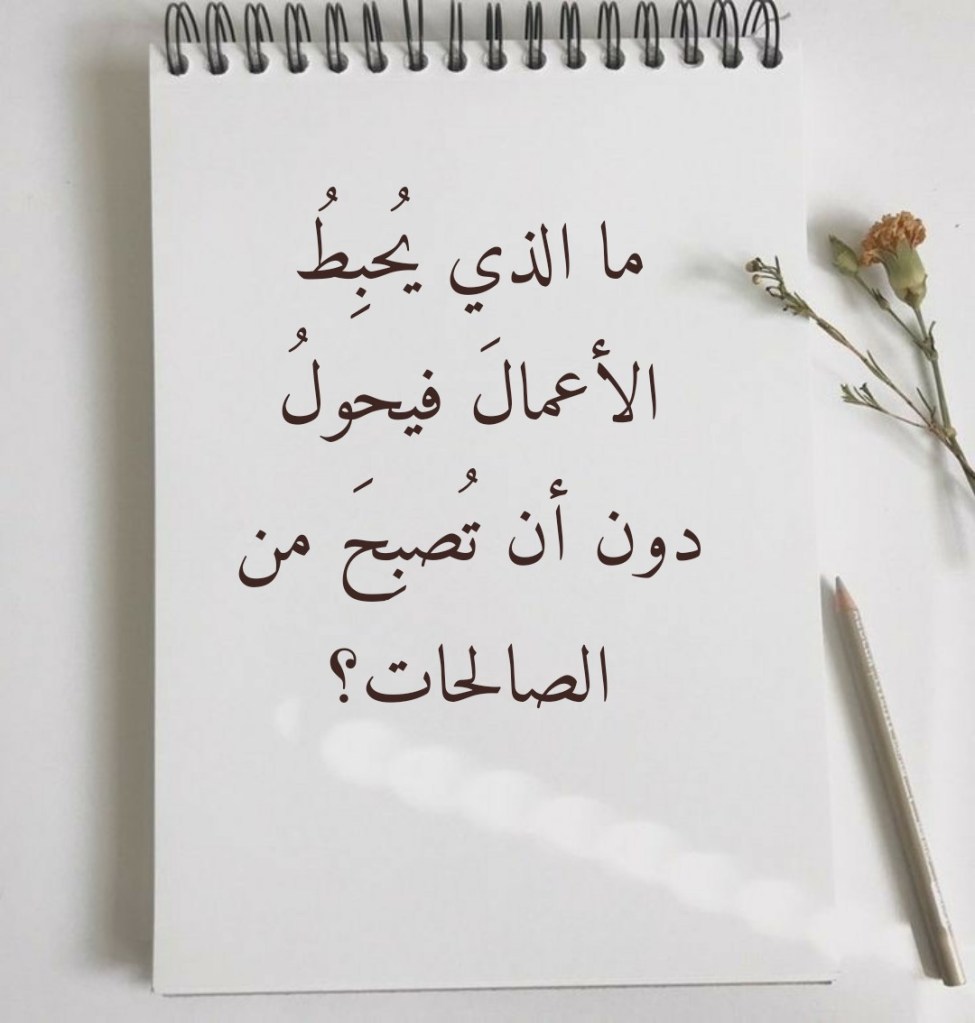 ما الذي يُحبِطُ
الأعمالَ فيحولُ
دون أن تُصبِحَ من
الصالحات؟